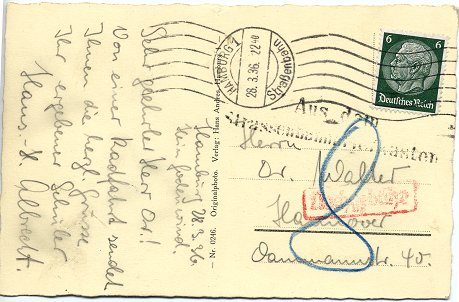 Sehr geehrter Herr Dr.!
Von einer Radfahrt sendet
Ihnen die herzl. Grüsse
Ihr ergebener Schüler
Hans-H. Albrecht.
Hamburg 28.3.36.
– Nr. 0246. Originalphoto. Verlag: Hans Andres, Ha
HAMBURG 1
28.3.36. 2240
Straßenbahn
6 6
Deutsches Reich
Aus dem
Strassenbahnbriefkasten
Herrn
Dr. Walter
Hannover
Dammannstr. 40.
8